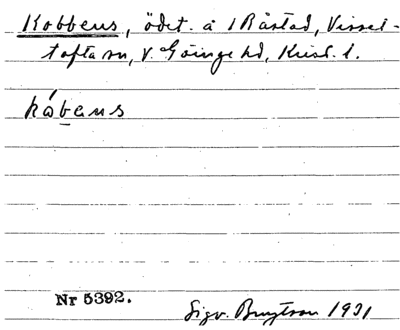 Kobbens, ödet. å 1 Råstad, Vissel-
tofta sn, V. Göinge hd, Krist. l.
kåbens
Nr 5392.
Sigv. Bengtson 1931